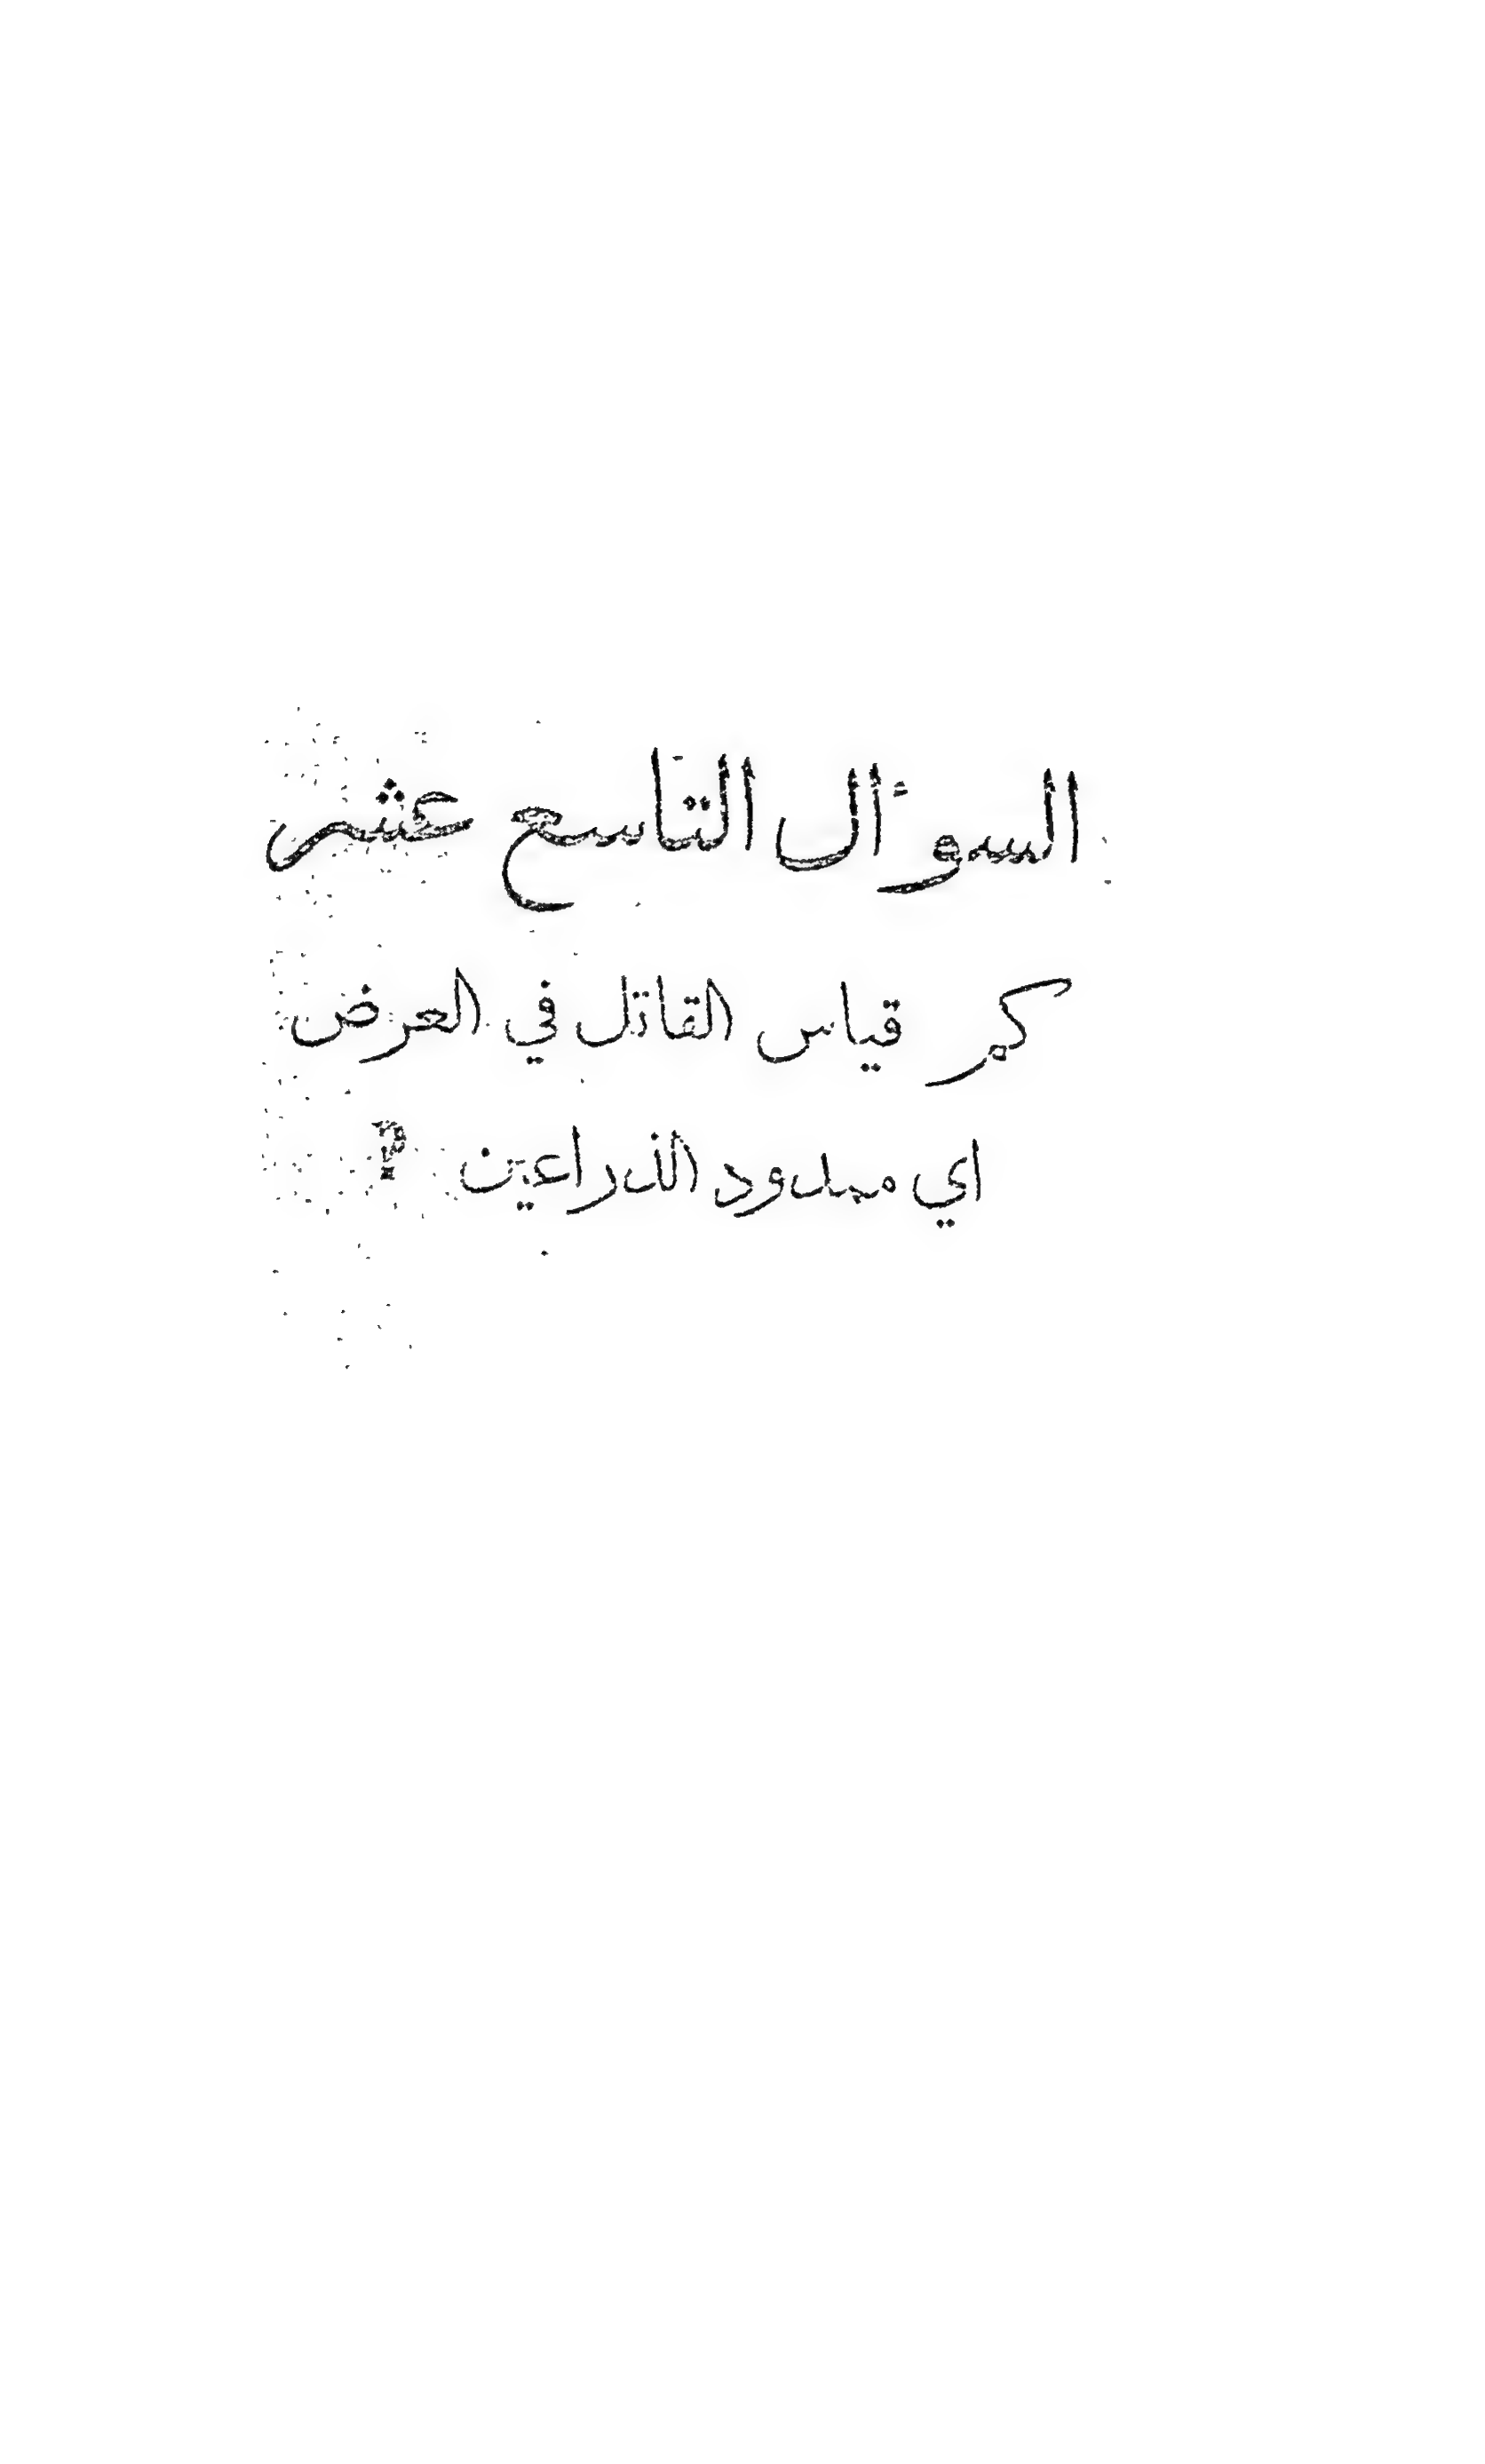 السوءأل التاسع عشر
كم قياس القاتل في العرض
اي ممدود الذراعين ؟